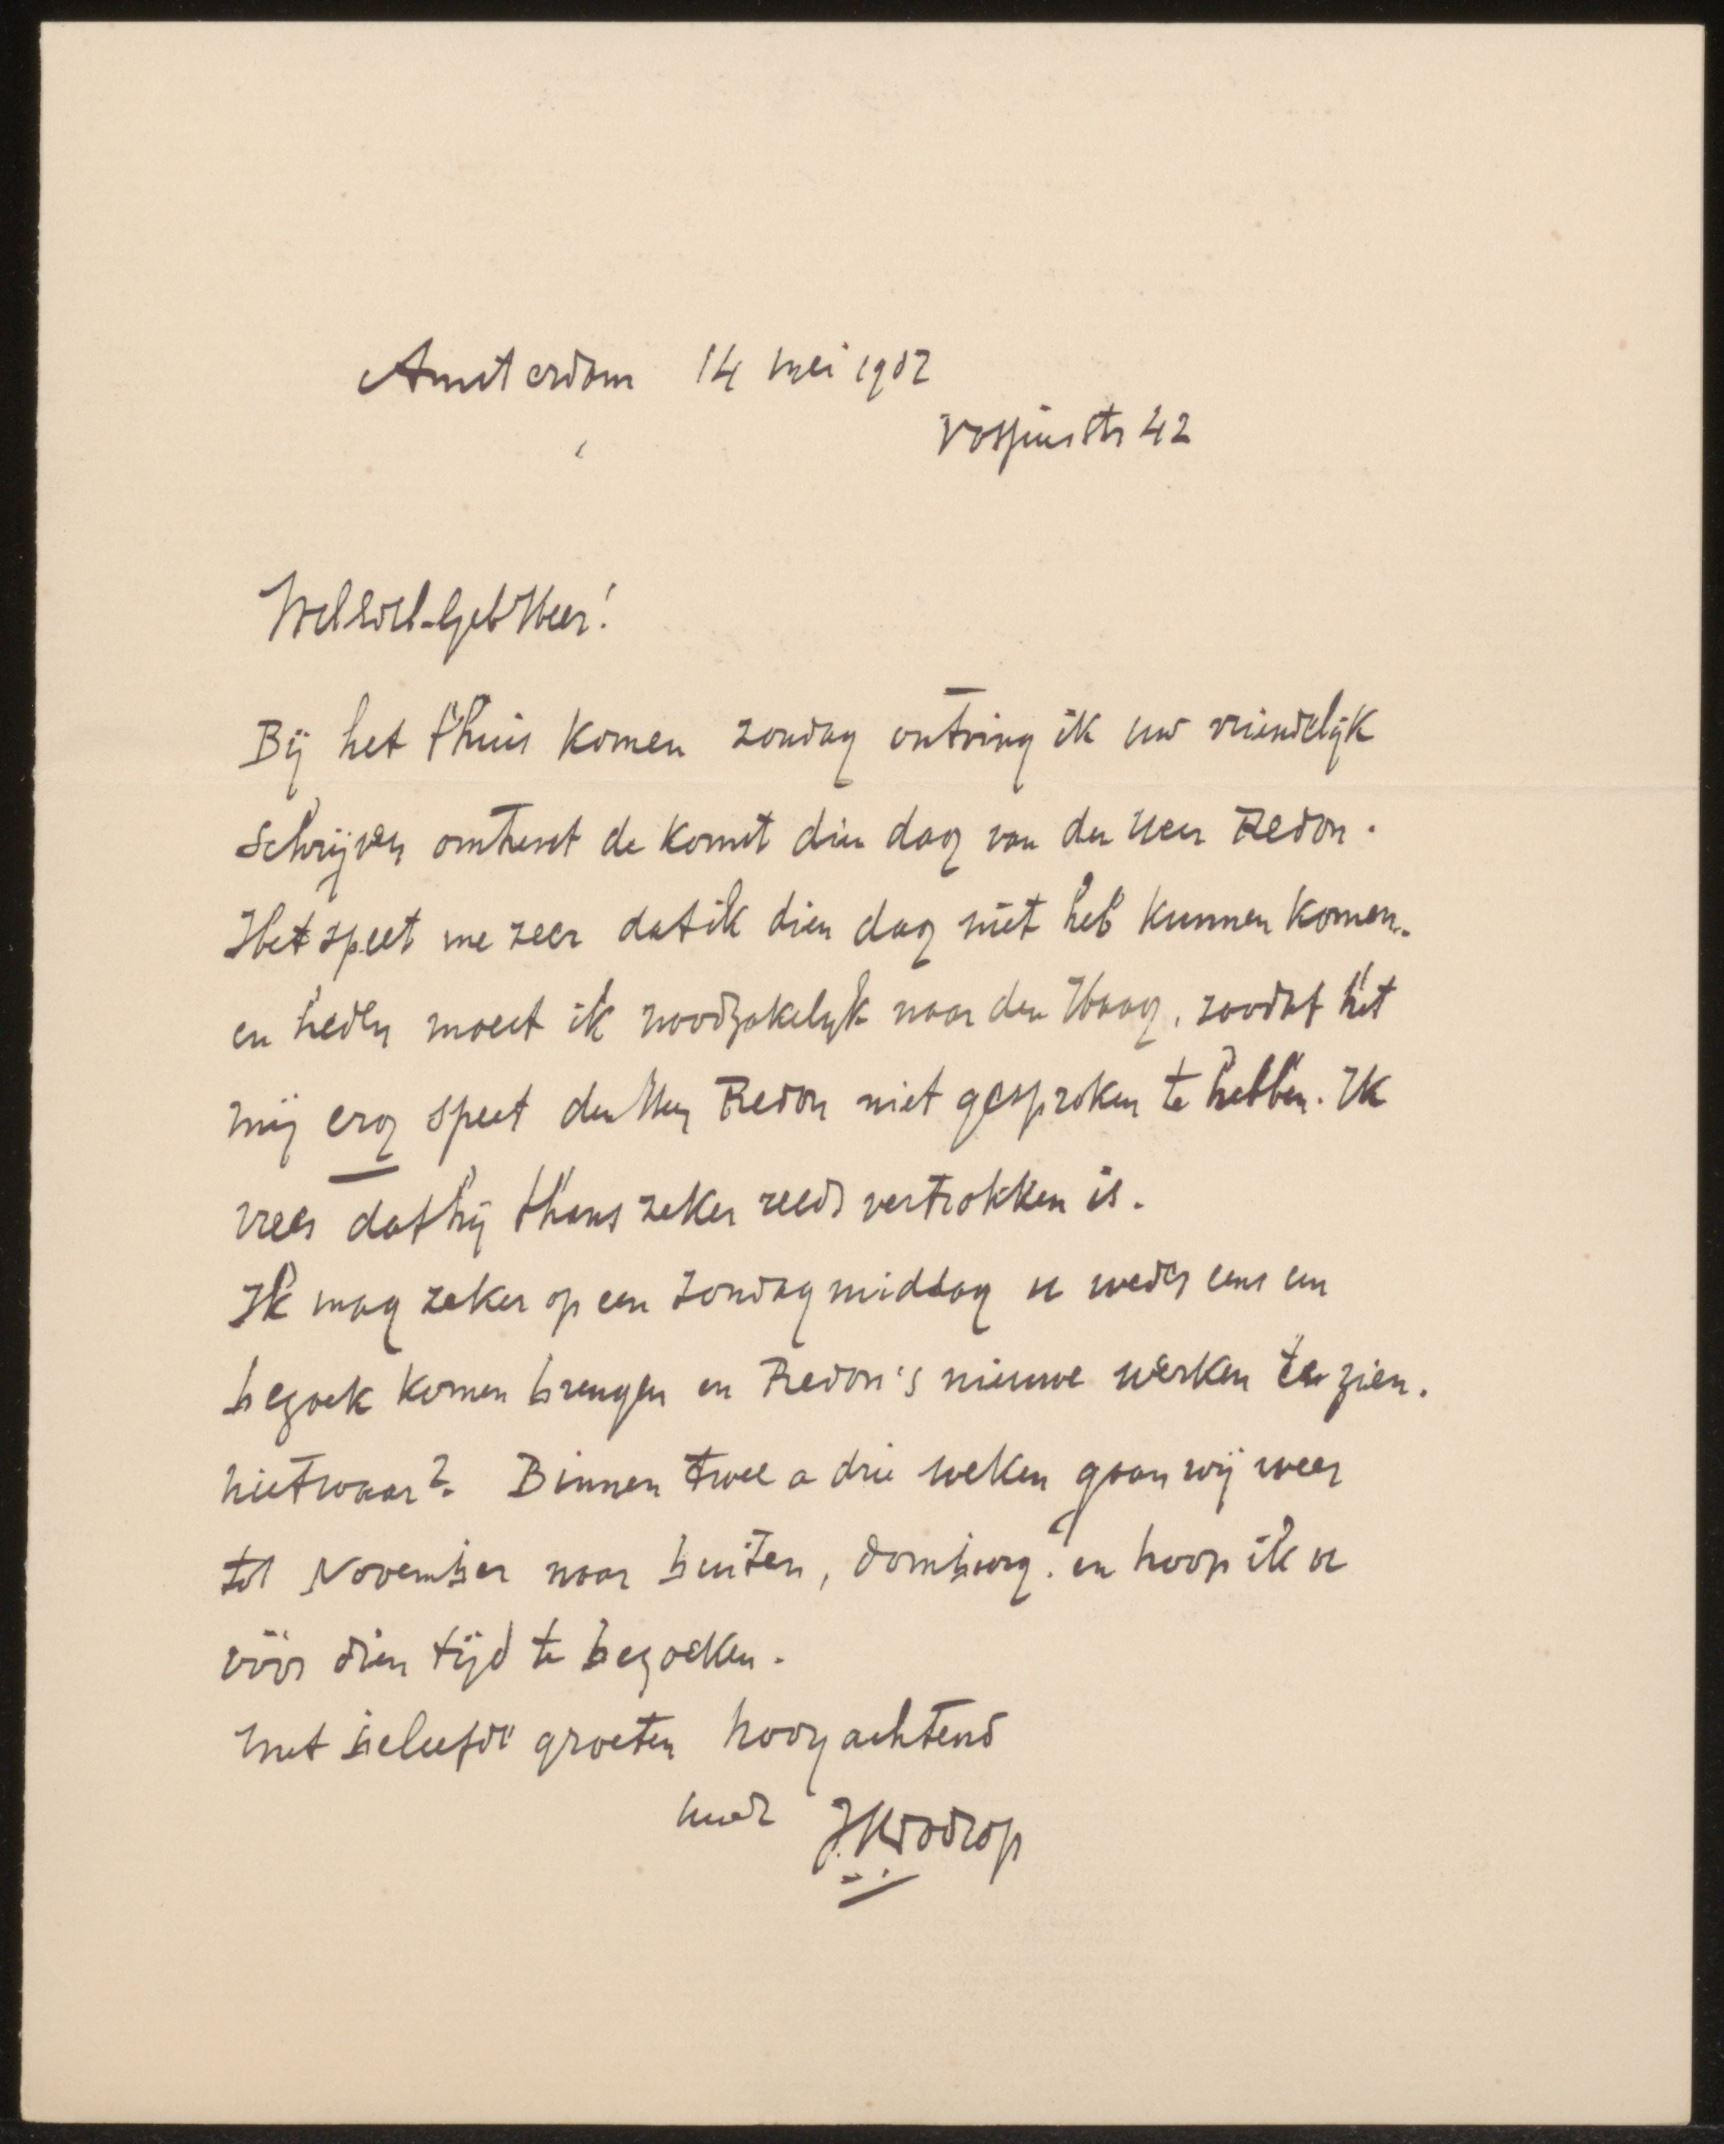 Amsterdam 14 mei 1907
Vossiusstr 42
WelEdel-Geb Heer!
Bij het thuis komen zondag ontving ik uw vriendelijk
schrijven omtrent de komst dien dag van den Heer Redon.
Het speet me zeer dat ik dien dag niet heb kunnen komen.
en heden moest ik noodzakelijk naar den Haag, zoodat het
mij erg speet den Heer Redon niet gesproken te hebben. Ik
vrees dat hij thans zeker reeds vertrokken is.
Ik mag zeker op een Zondag middag u weder eens een
bezoek komen brengen en Redon's nieuwe werken te zien.
nietwaar? Binnen twee a drie weken gaan wij weer
tot November naar buiten, Domburg. en hoop ik u
vóór dien tijd te bezoeken.
met beleefde groeten hoogachtend
uwd JthToorop